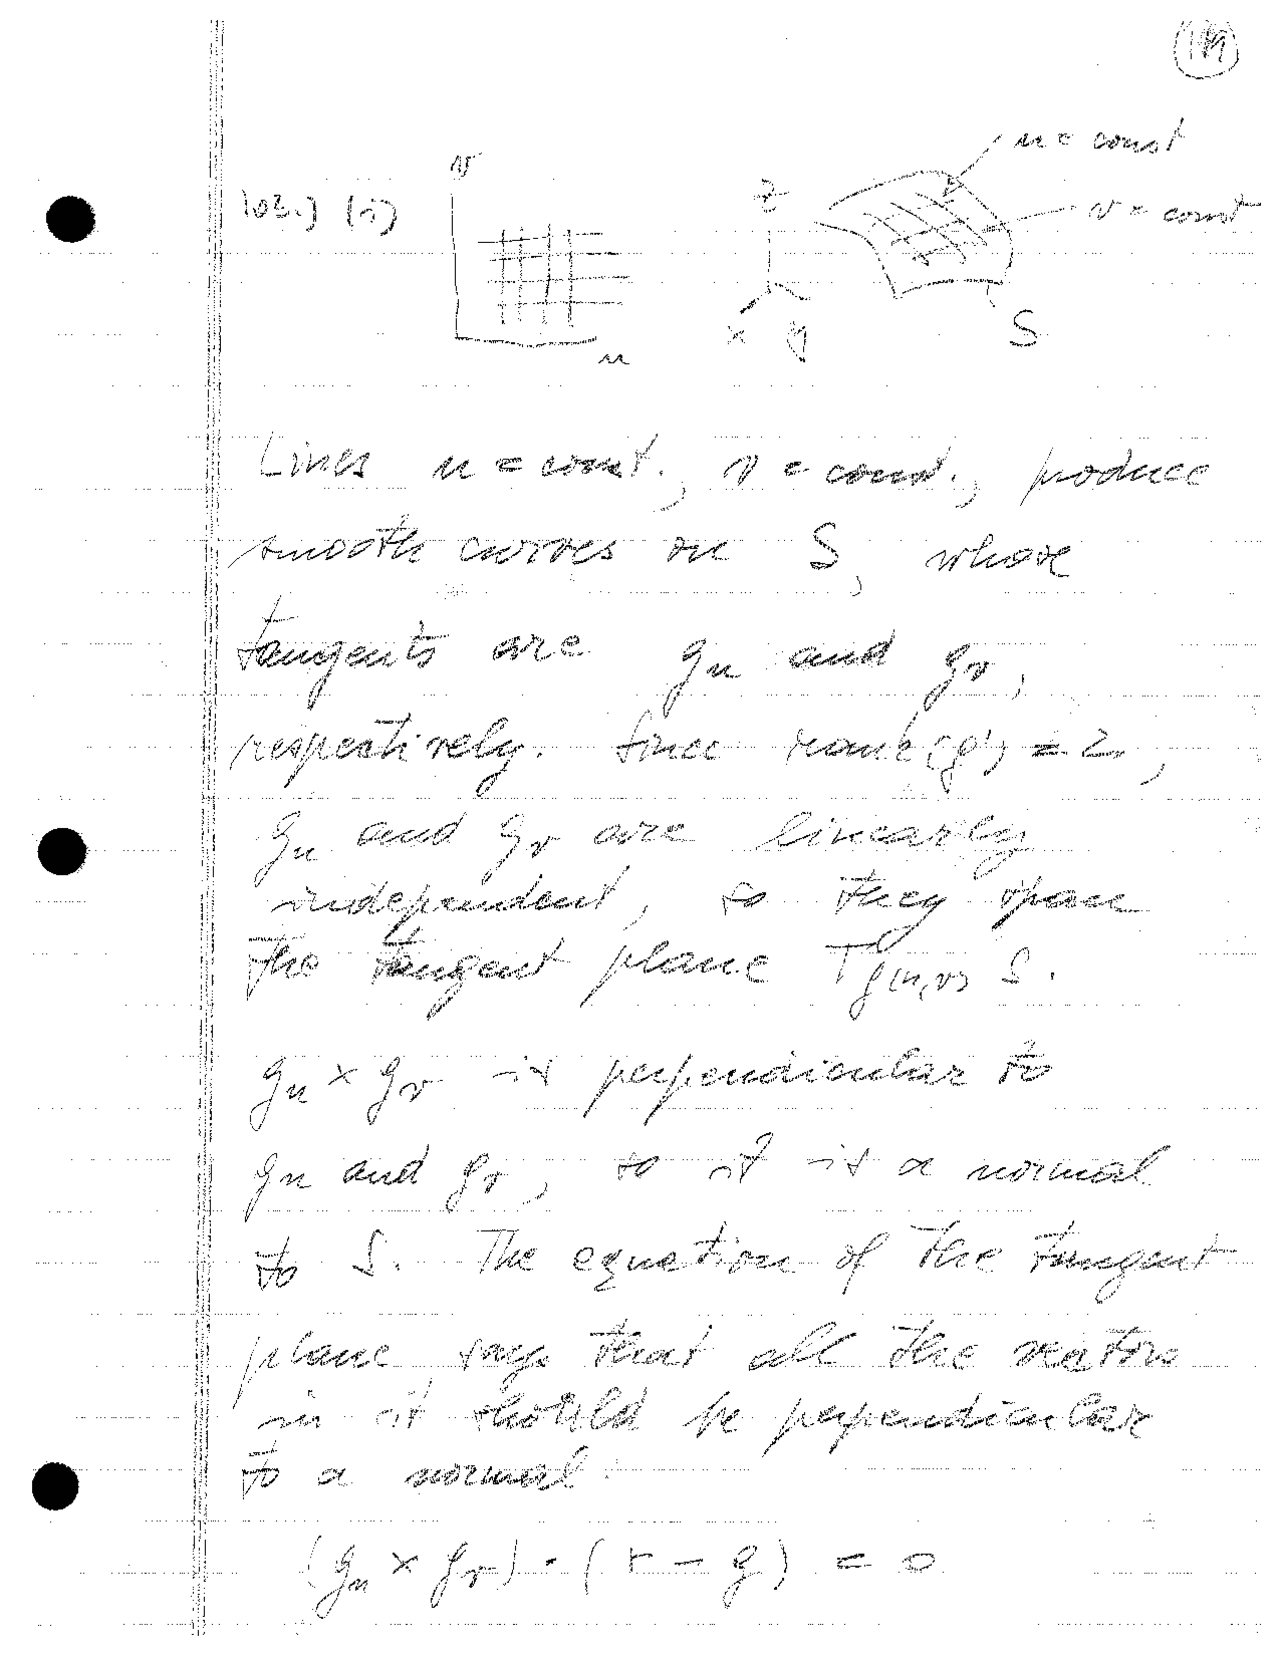 v
u = const
z
103.) (i)
v = const
x y
S
u
Lines u = const., v = const., produce
smooth curves on S, whose
tangents are g_u and g_v,
respectively. Since rank(g') = 2,
g_u and g_v are linearly
independent, so they span
the tangent plane T_{g(u,v)} S.
g_u × g_v is perpendicular to
g_u and g_v, so it is a normal
to S. The equation of the tangent
plane says that all the vectors
in it should be perpendicular
to a normal.
(g_u × g_v) · (r − g) = 0